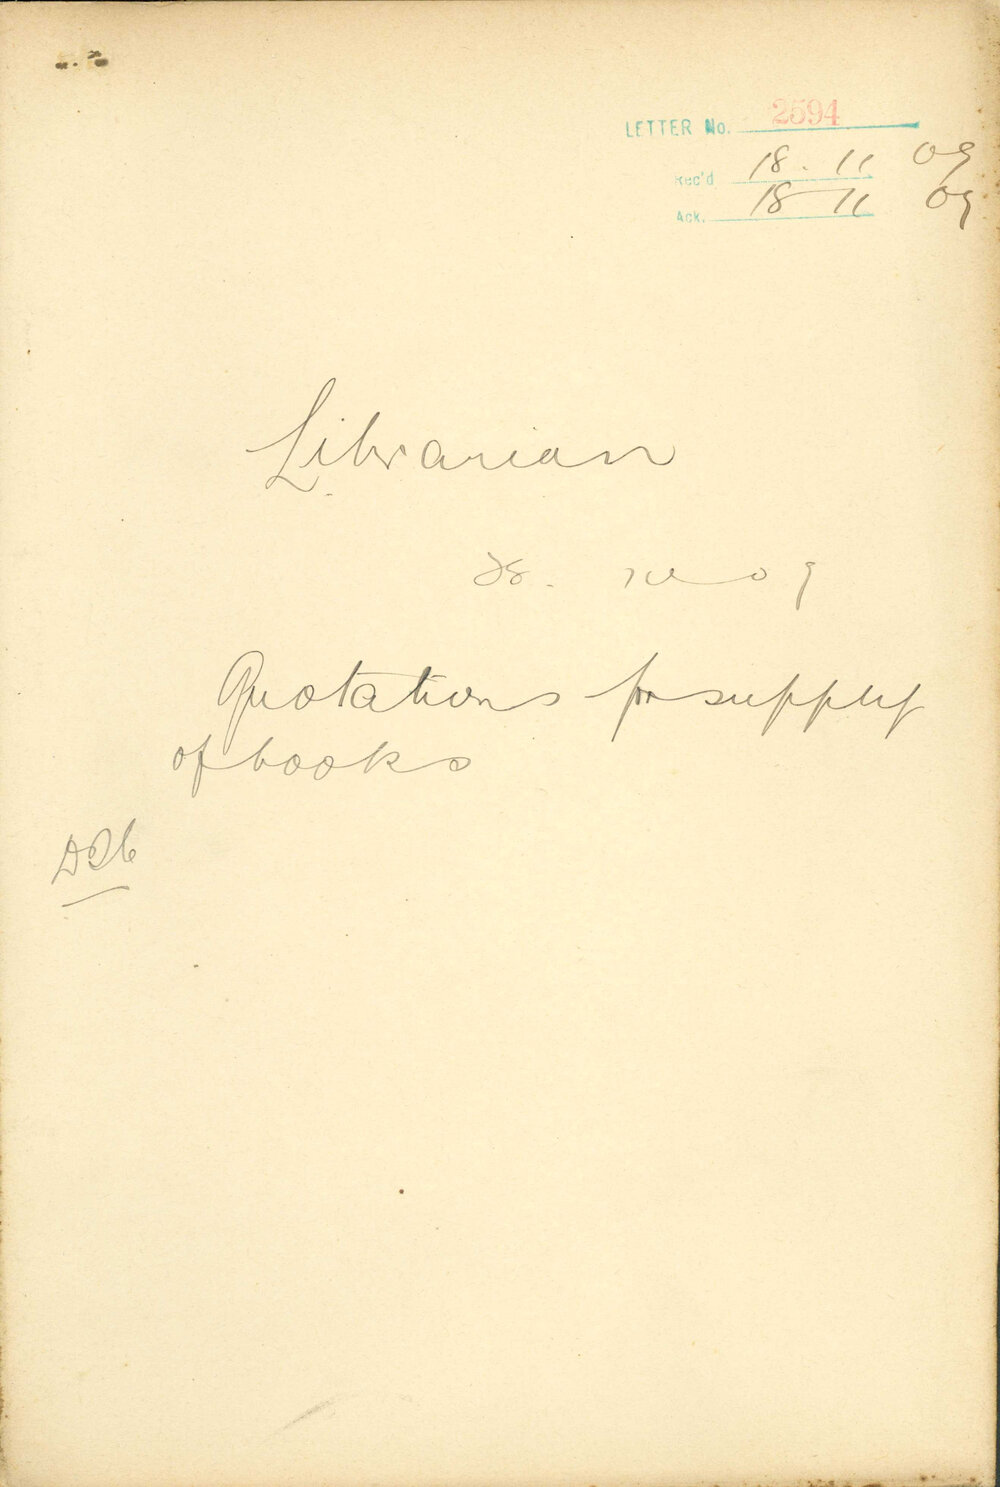 LETTER No. 2594
Rec'd 18. 11 09
Ack. 18 11 09
Librarian
Quotations for supply
of books